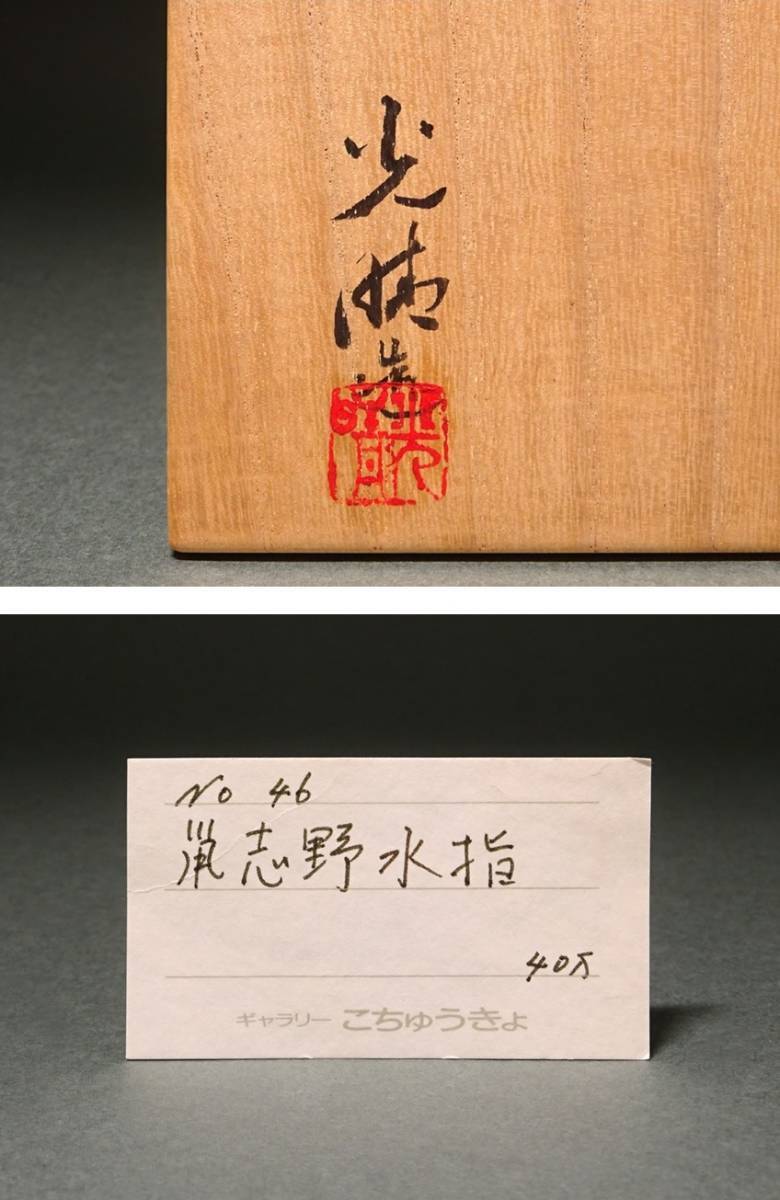 光晴造
光晴
No 46
鼠志野水指
40万
ギャラリー こちゅうきょ